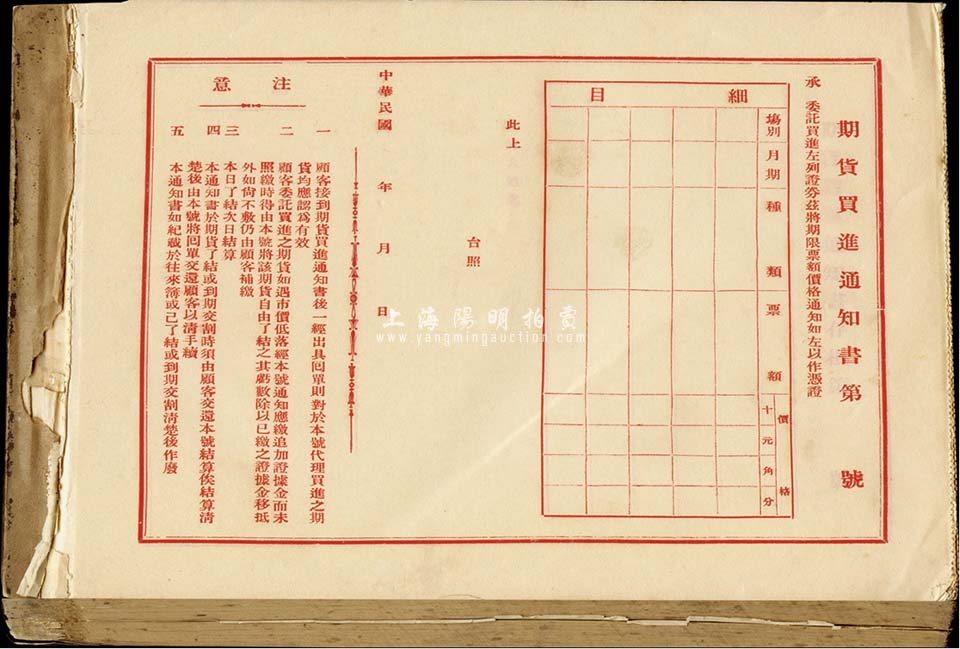 期貨買進通知書第　號
承　委託買進左列證券茲將期限票額價格通知如左以作憑證
細目
場別
月期
種類
票額
價格
十元角分
此上
台照
中華民國　年　月　日
注意
一　顧客接到期貨買進通知書後一經出具囘單則對於本號代理買進之期
貨均應認爲有效
二　顧客委託買進之期貨如遇市價低落經本號通知應繳追加證據金而未
照繳時得由本號將該期貨自由了結之其虧數除以已繳之證據金移抵
外如尙不敷仍由顧客補繳
三　本日了結次日結算
四　本通知書於期貨了結或到期交割時須由顧客交還本號結算俟結算淸
楚後由本號將囘單交還顧客以淸手續
五　本通知書如紀載於往來簿或已了結或到期交割淸楚後作廢
上海陽明拍賣
www.yangmingauction.com